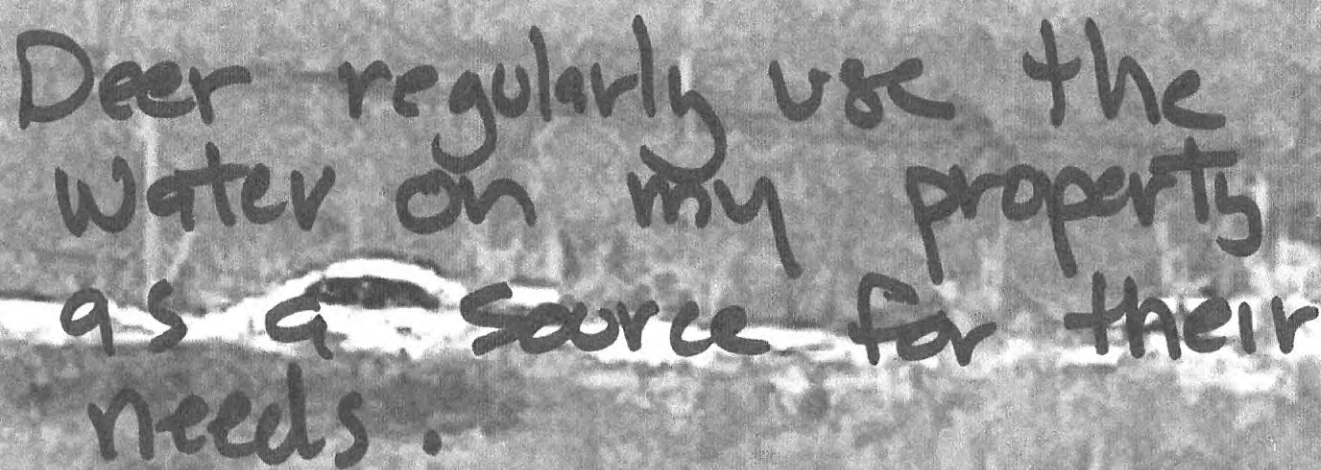 Deer regularly use the
water on my property
as a source for their
needs.